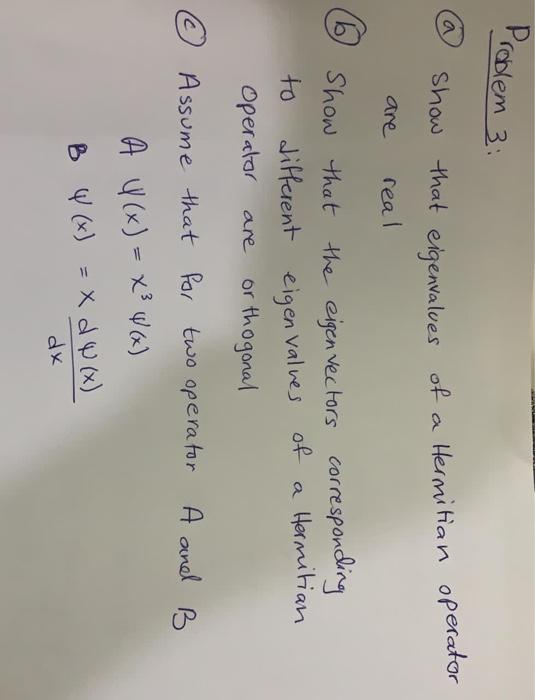 Problem 3:
(a) Show that eigenvalues of a Hermitian operator
are real
(b) Show that the eigenvectors corresponding
to different eigenvalues of a Hermitian
operator are orthogonal
(c) Assume that for two operator A and B
A ψ(x) = x³ ψ(x)
B ψ(x) = x dψ(x)
dx